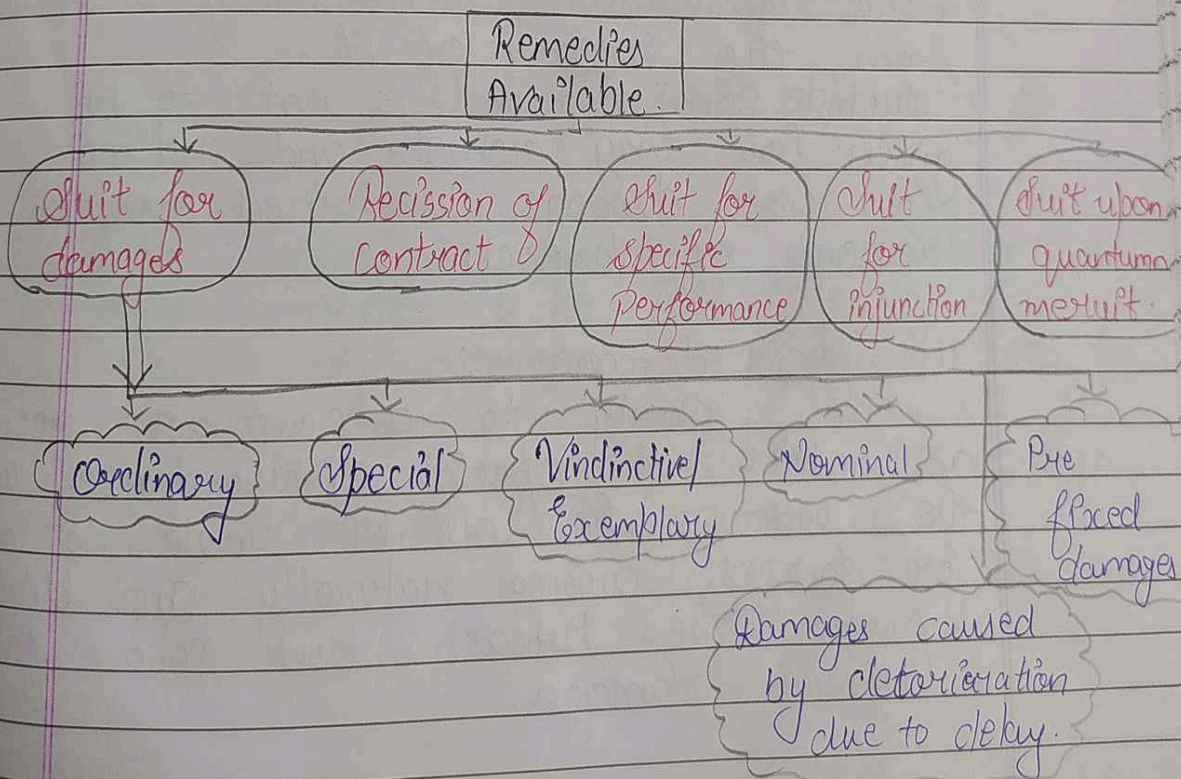 Remedies
Available.
Suit for
damages
Recission of
contract
Suit for
specific
performance
Suit
for
injunction
Suit upon
quantumn
meruit.
Ordinary
Special
Vindinctive/
Exemplary
Nominal
Pre
ffixed
damages
Damages caused
by detorioration
due to delay.